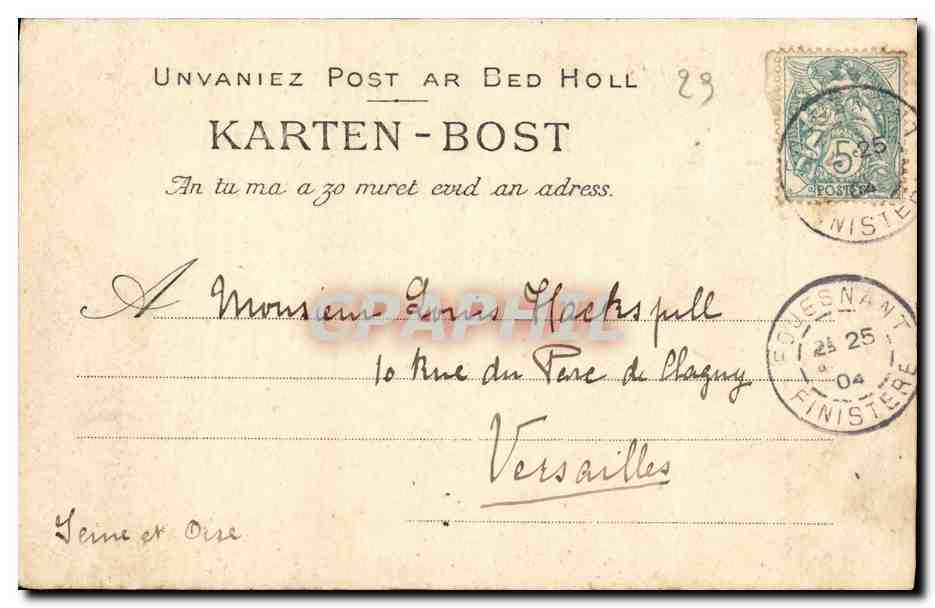 UNVANIEZ POST AR BED HOLL
23
KARTEN-BOST
An tu ma a zo miret evid an adress.
5
25
POSTES
04
FINISTERE
A Monsieur Louis Hackspill
CPAPHIL
10 Rue du Parc de Clagny
Versailles
Seine et Oise
FOUESNANT
25
04
FINISTERE